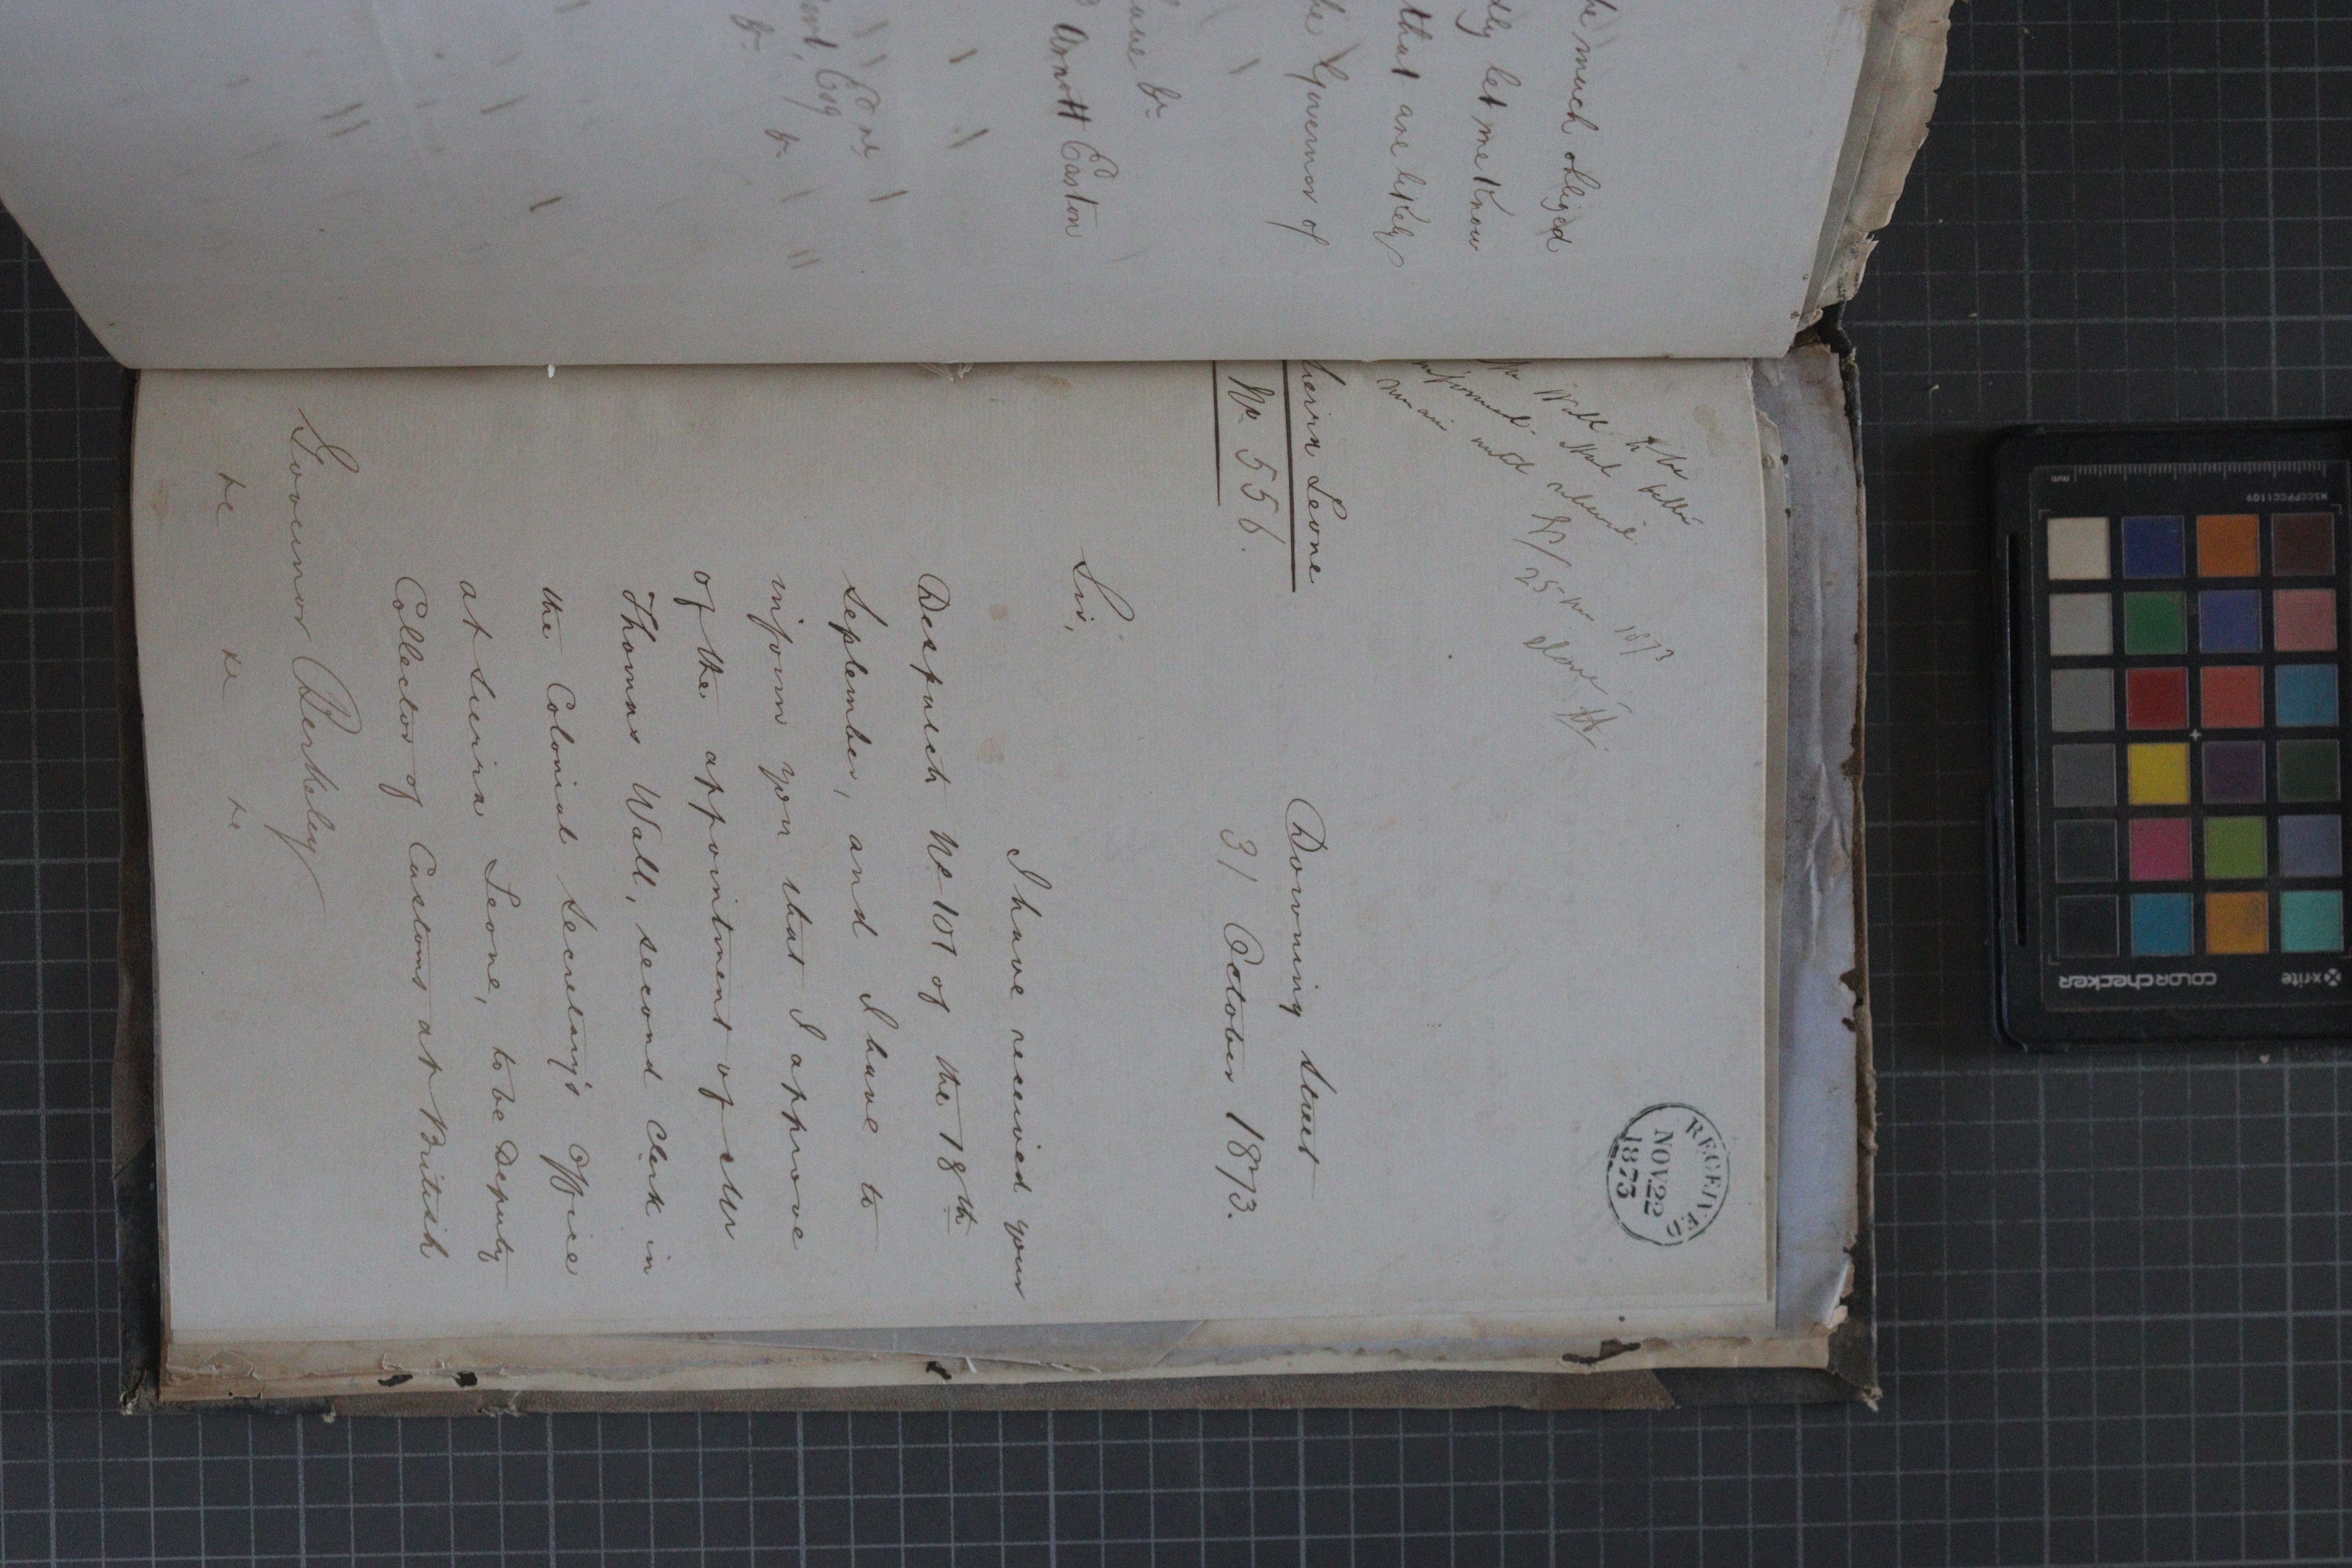 be much obliged
let me know
that are likely
the Governor of
Arnott Easton
Esq
Mr Wall to be
informed. Shal
until
25 Nov 1873
Done
RECEIVED
NOV.22
1873
Sierra Leone
No 556.
Downing Street
31 October 1873.
Sir,
I have received your
Despatch No 101 of the 18th
September, and I have to
inform you that I approve
of the appointment of Mr
Thomas Wall, second Clerk in
the Colonial Secretary's Office
at Sierra Leone, to be Deputy
Collector of Customs at British
Governor Berkeley
&c &c &c
x-rite
colorchecker
MSCCPPCC1109
mm